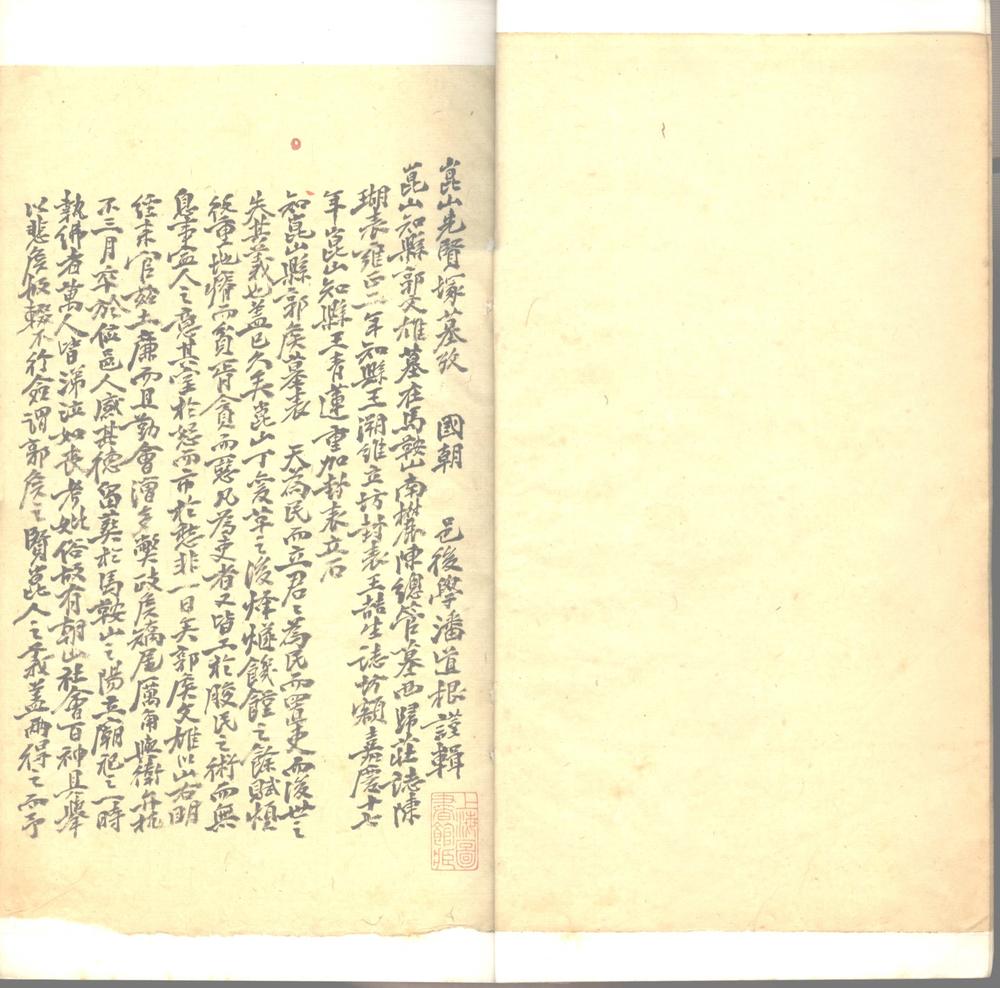 崑山先賢塚墓攷 國朝 邑後學潘道根謹輯
崑山知縣郭文雄墓在馬鞍山南麓陳總管墓西歸莊誌陳
瑚表雍正二年知縣王溯維立坊封表王喆生誌坊額嘉慶十七
年崑山知縣王青蓮重加封表立石
知崑山縣郭侯墓表 天為民而立君君為民而置吏而後世之
失其義也蓋已久矣崑山丁變革之後烽燧饑饉之餘賦煩
役重地瘠而貧胥貪而惡凡為吏者又皆工於朘民之術而無
息東宜人之意其室於怒而市於愁非一日矣郭侯文雄以山右明
經來官茲土廉而且勤會漕多弊政侯搞尾厲角與衛弁抗
不三月卒於位邑人感其德留葬於馬鞍山之陽立廟祀之一時
執紼者萬人皆涕泣如喪考妣俗故有朝山社會百神具舉
以悲侯故輟不行僉謂郭侯之賢崑人之義蓋兩得之而予
上海圖書館藏